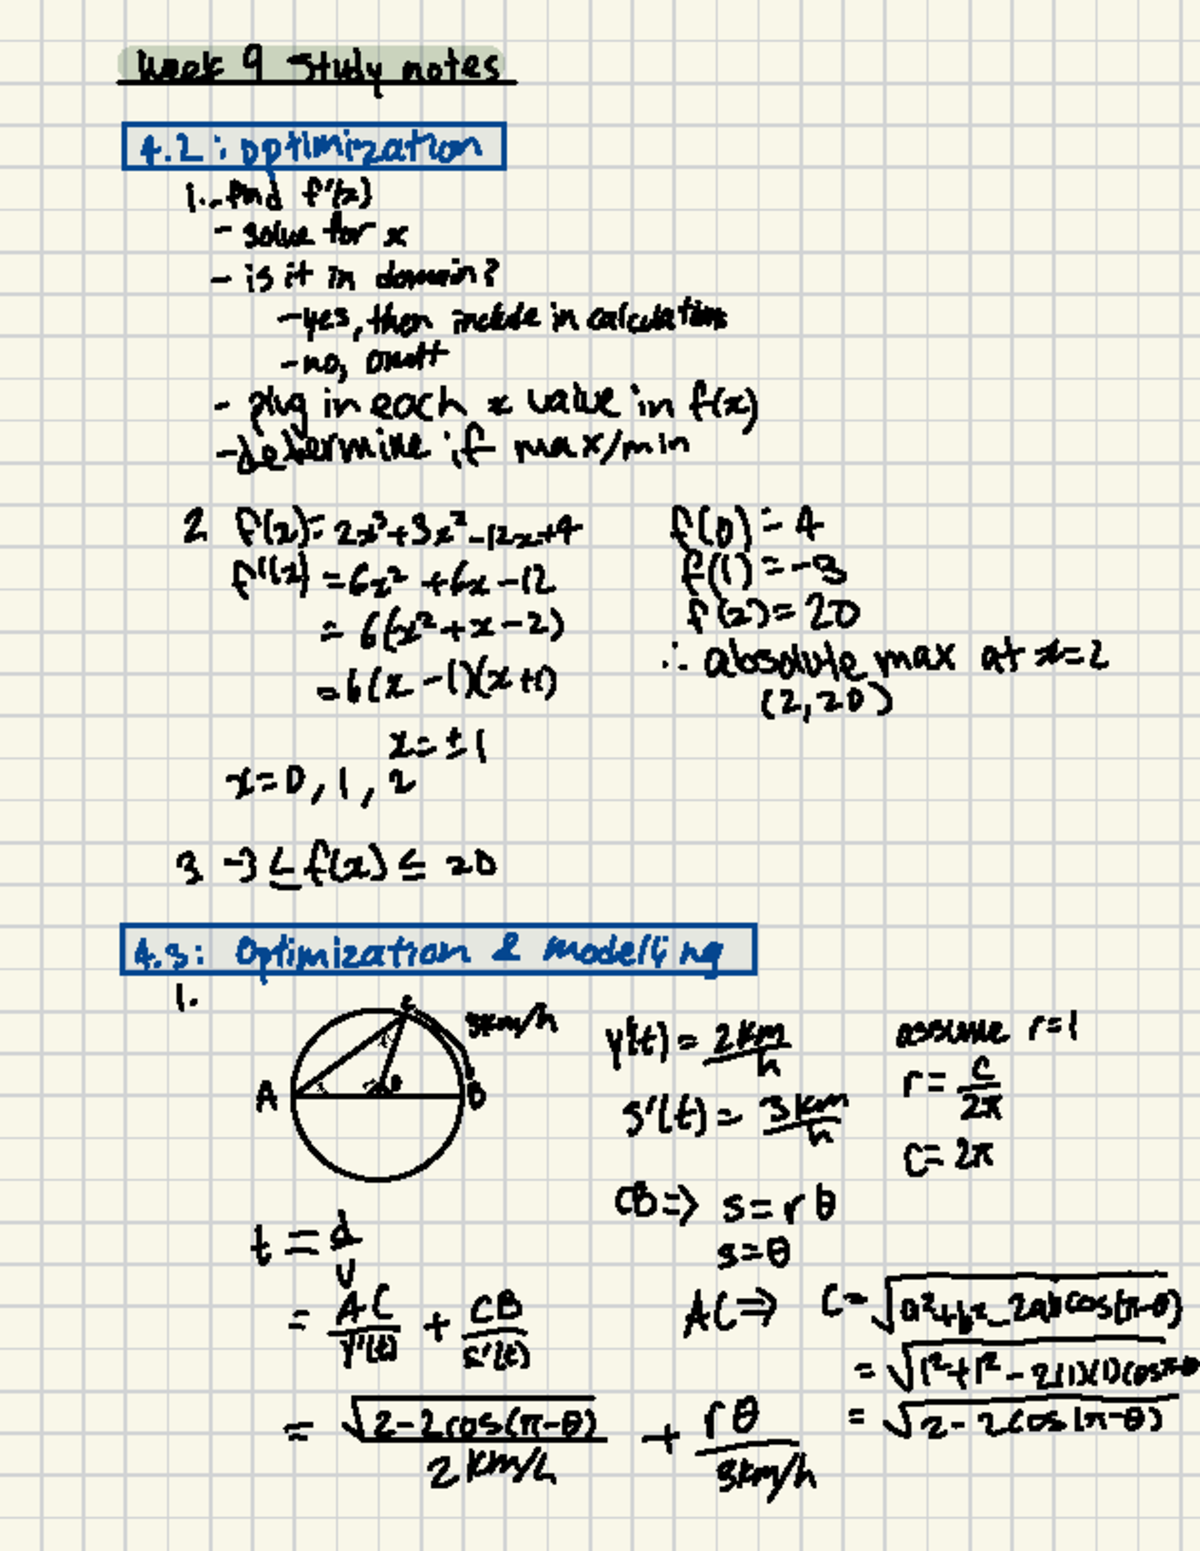 Week 9 Study notes
4.2: optimization
1. find f'(x)
- solve for x
- is it in domain?
- yes, then include in calculations
- no, omit
- plug in each x value in f(x)
- determine if max/min
2 f(x)= 2x³+3x²-12x+4
f'(x) = 6x² + 6x - 12
= 6(x²+x-2)
= 6(x-1)(x+1)
x= ±1
x=0, 1, 2
f(0) = 4
f(1) = -3
f(2) = 20
∴ absolute max at x=2
(2,20)
3 -3 ≤ f(x) ≤ 20
4.3: Optimization & modelling
1.
C
3km/h
A
B
y'(t) = 2km/h
s'(t) = 3km/h
assume r=1
r = C/2π
C= 2π
CB => s = rθ
s=θ
t = d/v
= AC/y'(t) + CB/s'(t)
= √2-2cos(π-θ)/2km/h + rθ/3km/h
AC => C= √a²+b²-2abcos(π-θ)
= √1²+1²-2(1)(1)cosπ-θ
= √2-2cos(π-θ)